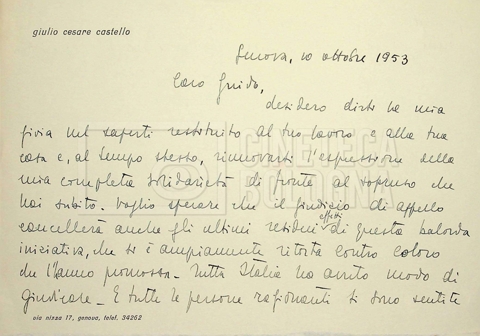 giulio cesare castello
Genova, 10 ottobre 1953
Caro Guido,
desidero dirti la mia
gioia nel saperti restituito al tuo lavoro e alla tua
casa e, al tempo stesso, rinnovarti l'espressione della
mia completa solidarietà di fronte al sopruso che
hai subito. Voglio sperare che il giudizio di appello
cancellerà anche gli ultimi residui effetti di questa balorda
iniziativa, che si è ampiamente ritorta contro coloro
che l'hanno promossa. Tutta Italia ha avuto modo di
giudicare. E tutte le persone ragionanti si sono sentite
via nizza 17, genova, telef. 34262
CINETECA
BOLOGNA